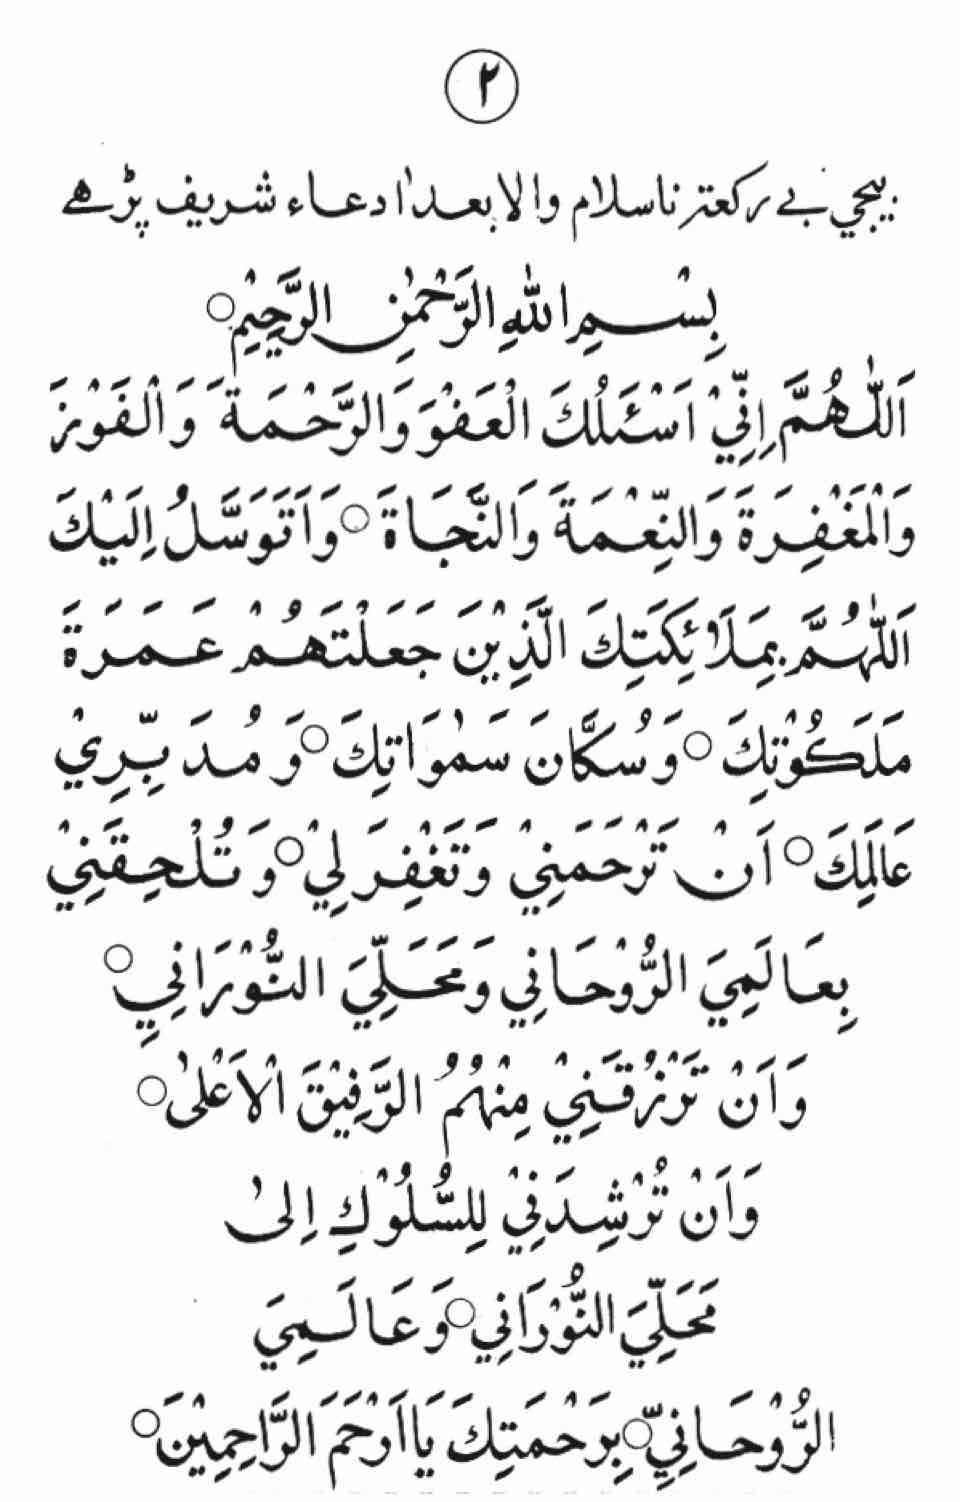 ٢
بيجي بے ركعتر ناسلام والا بعد اٰ دعاء شريف پڑهے
بِسْمِ اللهِ الرَّحْمٰنِ الرَّحِيْمِ ○
اَللّٰهُمَّ اِنِّيْ اَسْئَلُكَ الْعَفْوَ وَالرَّحْمَةَ وَالْفَوْزَ
وَالْمَغْفِرَةَ وَالنِّعْمَةَ وَالنَّجَاةَ ○ وَاَتَوَسَّلُ اِلَيْكَ
اَللّٰهُمَّ بِمَلَائِكَتِكَ الَّذِيْنَ جَعَلْتَهُمْ عَمَرَةَ
مَلَكُوْتِكَ ○ وَسُكَّانَ سَمٰوَاتِكَ ○ وَمُدَبِّرِيْ
عَالَمِكَ ○ اَنْ تَرْحَمَنِيْ وَتَغْفِرَ لِيْ ○ وَتُلْحِقَنِيْ
بِعَالَمِيَ الرُّوْحَانِي وَمَحَلِّيَ النُّوْرَانِيِ ○
وَاَنْ تَرْزُقَنِيْ مِنْهُمُ الرَّفِيْقَ الْاَعْلٰى ○
وَاَنْ تُرْشِدَنِيْ لِلسُّلُوْكِ اِلىٰ
مَحَلِّيَ النُّوْرَانِي ○ وَعَالَمِيَ
الرُّوْحَانِيِّ ○ بِرَحْمَتِكَ يَا اَرْحَمَ الرَّاحِمِيْنَ ○